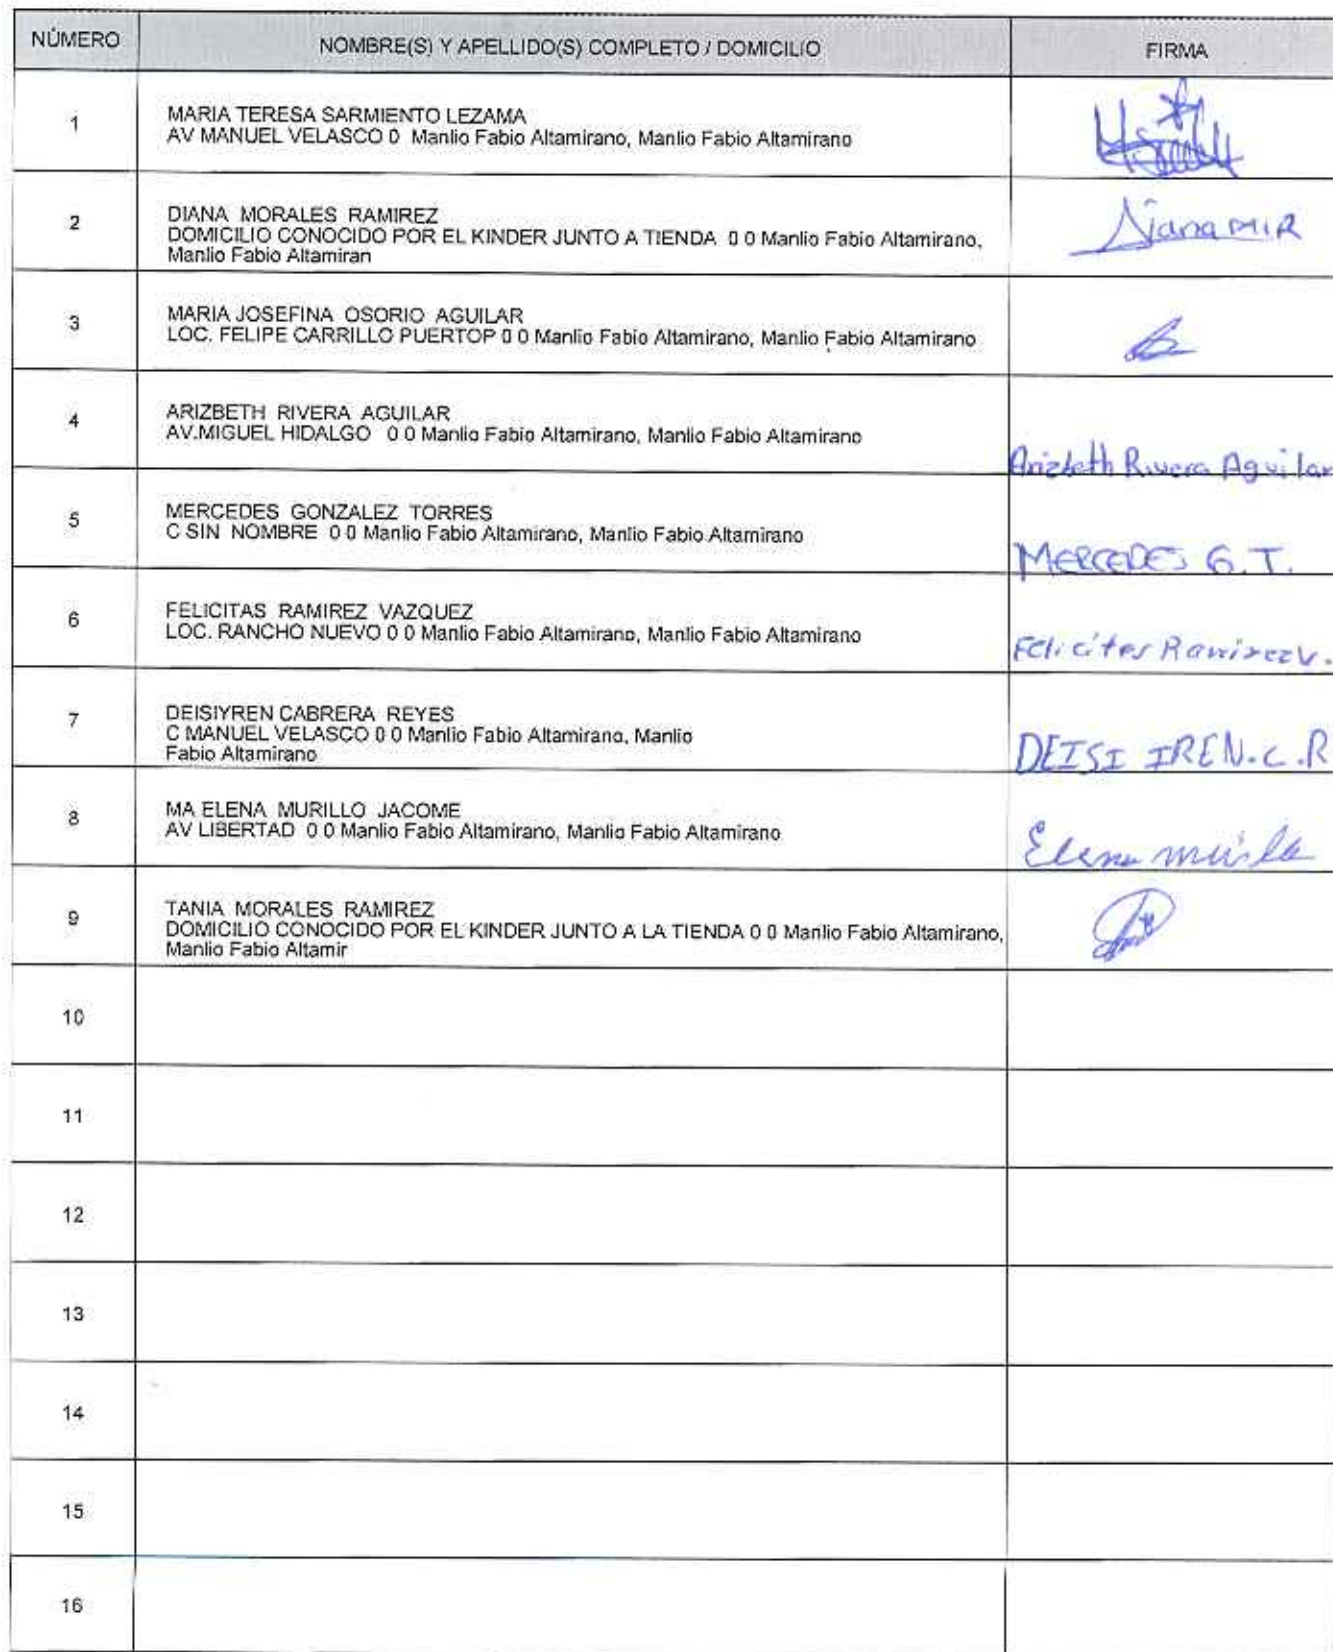 NÚMERO NOMBRE(S) Y APELLIDO(S) COMPLETO / DOMICILIO FIRMA
1 MARIA TERESA SARMIENTO LEZAMA
AV MANUEL VELASCO 0 Manlio Fabio Altamirano, Manlio Fabio Altamirano
2 DIANA MORALES RAMIREZ
DOMICILIO CONOCIDO POR EL KINDER JUNTO A TIENDA 0 0 Manlio Fabio Altamirano,
Manlio Fabio Altamiran
Diana MIR
3 MARIA JOSEFINA OSORIO AGUILAR
LOC. FELIPE CARRILLO PUERTOP 0 0 Manlio Fabio Altamirano, Manlio Fabio Altamirano
4 ARIZBETH RIVERA AGUILAR
AV.MIGUEL HIDALGO 0 0 Manlio Fabio Altamirano, Manlio Fabio Altamirano
Arizbeth Rivera Aguilar
5 MERCEDES GONZALEZ TORRES
C SIN NOMBRE 0 0 Manlio Fabio Altamirano, Manlio Fabio Altamirano
MERCEDES G.T.
6 FELICITAS RAMIREZ VAZQUEZ
LOC. RANCHO NUEVO 0 0 Manlio Fabio Altamirano, Manlio Fabio Altamirano
Felicitas Ramirez V.
7 DEISIYREN CABRERA REYES
C MANUEL VELASCO 0 0 Manlio Fabio Altamirano, Manlio
Fabio Altamirano
DEISI IREN.C.R
8 MA ELENA MURILLO JACOME
AV LIBERTAD 0 0 Manlio Fabio Altamirano, Manlio Fabio Altamirano
Elena
9 TANIA MORALES RAMIREZ
DOMICILIO CONOCIDO POR EL KINDER JUNTO A LA TIENDA 0 0 Manlio Fabio Altamirano,
Manlio Fabio Altamir
10
11
12
13
14
15
16